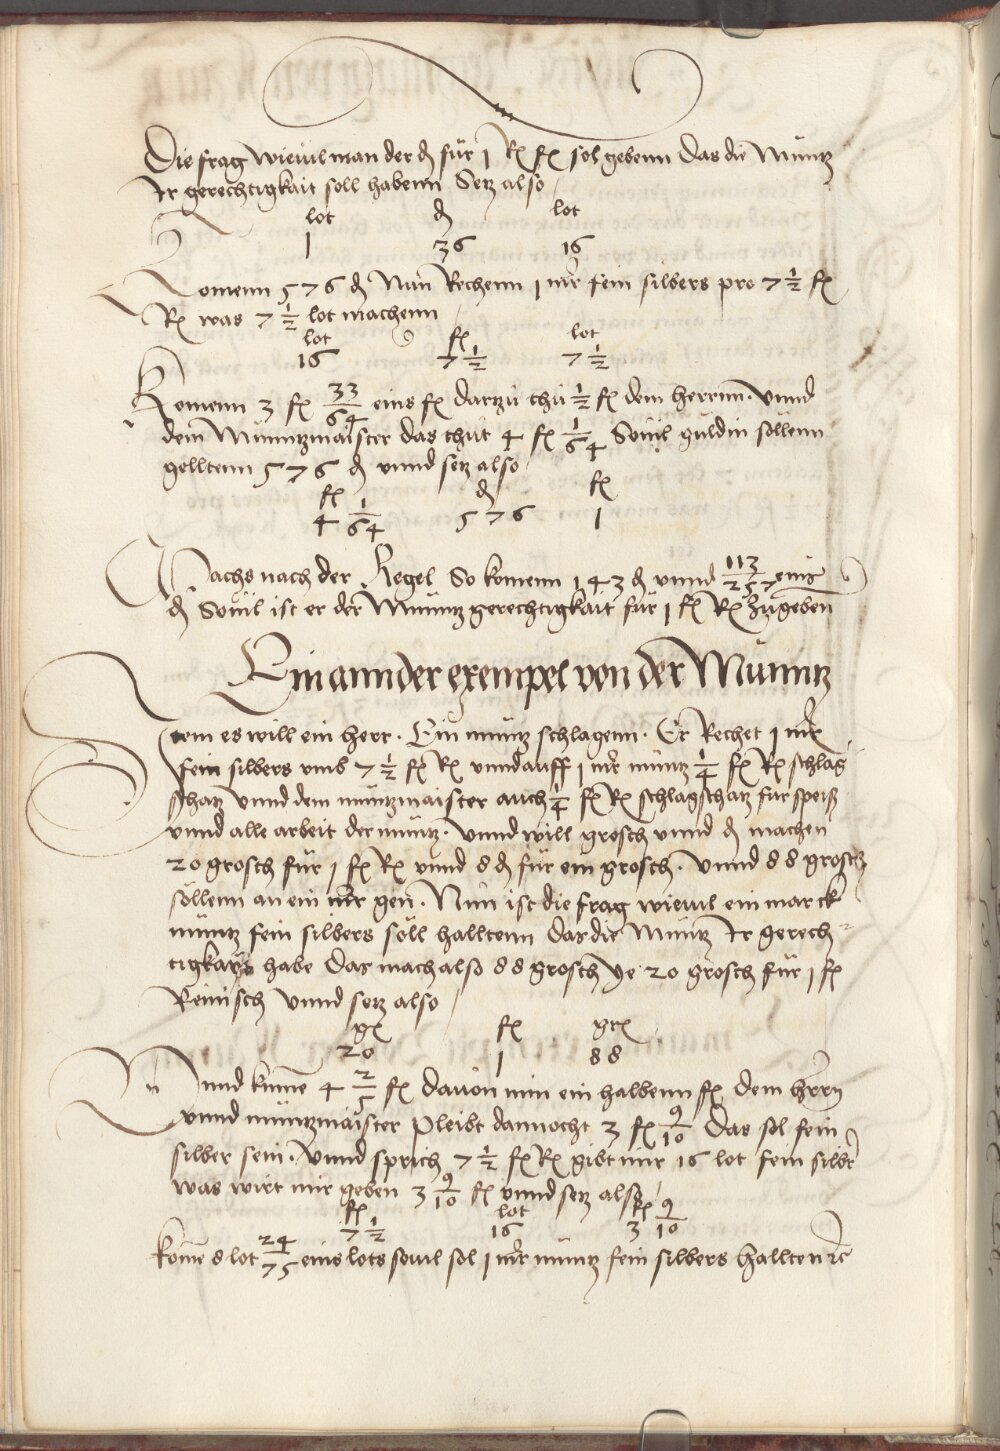 Die frag wieuil man der ₰ für 1 Rx fx sol gebenn Das die Müntz
Ir gerechtigkait soll habenn Setz also
lot ₰ lot
1 36 16
Komenn 576 ₰ Nun Rechenn 1 mr fein silbers pro 7 1/2 fx
Rx was 7 1/2 lot machenn
lot fx lot
16 7 1/2 7 1/2
Komenn 3 fx 33/64 eins fx Dartzu thu 1/2 fx dem herrnn. Vnnd
dem Münntzmaister das thut 4 fx 1/64 Souil guldin söllenn
gelltenn 576 ₰ vnnd setz also
fx ₰ fx
4 1/64 576 1
Machs nach der Regel So komenn 143 ₰ vnnd 113/257 eins
₰ Souil ist er der Münntz gerechtigkait für 1 fx Rx zugeben
Ein annder exempel von der Münntz
Item es will ein herr. Ein müntz schlagenn. Er Rechet 1 mr
fein silbers vmb 7 1/2 fx Rx vnnd auff 1 mr müntz 1/4 fx Rx schlag
schatz Vnnd dem müntzmaister auch 1/4 fx Rx schlagschatz für speiß
vnnd alle arbeit der müntz. Vnnd will grosch vnnd ₰ machen
20 grosch für 1 fx Rx vnnd 8 ₰ für ein grosch. Vnnd 88 grosch
söllenn an ein mr gen. Nun ist die frag wieuil ein marck
müntz fein silbers söll halltenn Das die Müntz Ir gerech
tigkays habe Das mach also 88 grosch Ye 20 grosch für 1 fx
Reinisch Vnnd setz also
gx fx grx
20 1 88
Vnnd kume 4 2/5 fx dauon nim ein halbenn fx dem herrn
vnnd müntzmaister Pleibt dannocht 3 fx 9/10 Das sol fein
silber sein. Vnnd sprich 7 1/2 fx Rx gibt mir 16 lot fein silbr
was wirt mir geben 3 9/10 fx vnnd setz also
fx lot fx
7 1/2 16 3 9/10
Kome 8 lot 24/75 eins lots souil sol 1 mr müntz fein silbers hallten ꝛc